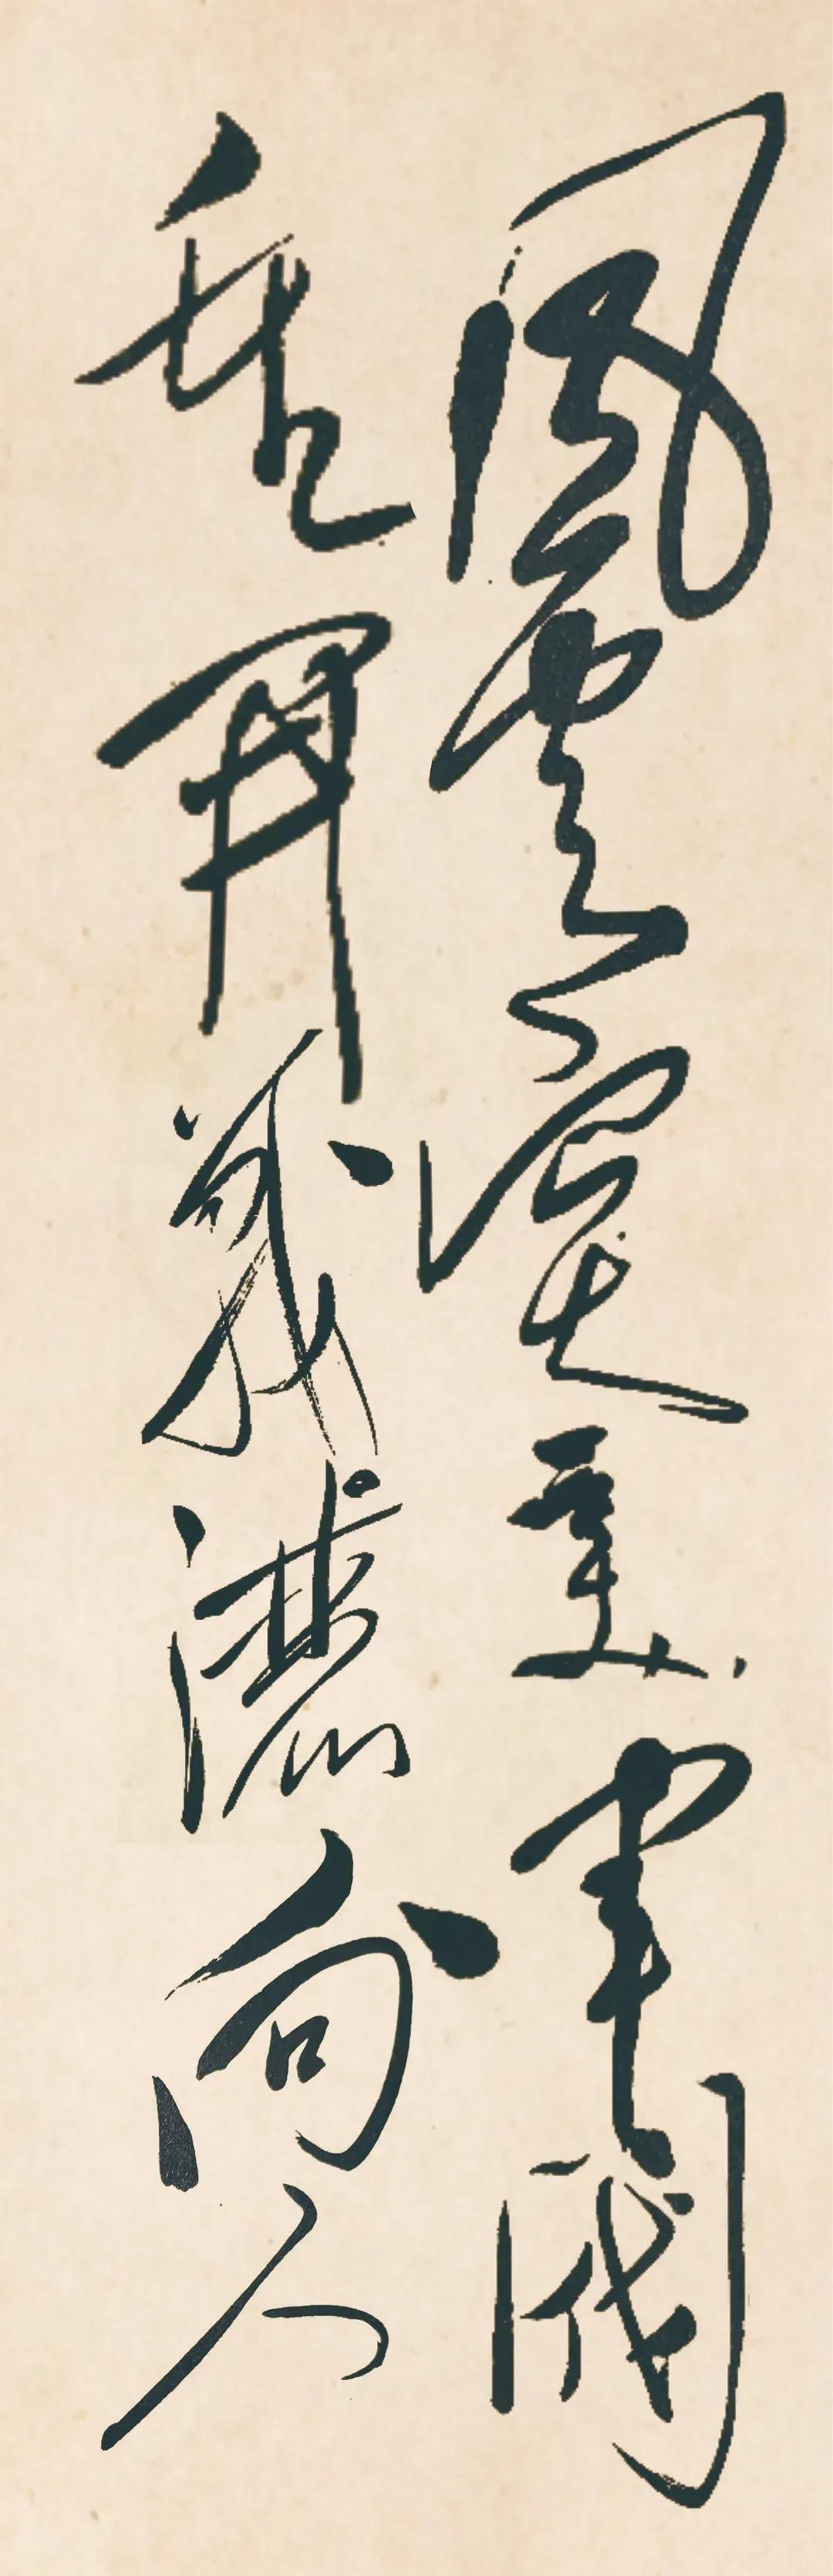 風雲突變軍閥
重開戰灑向人